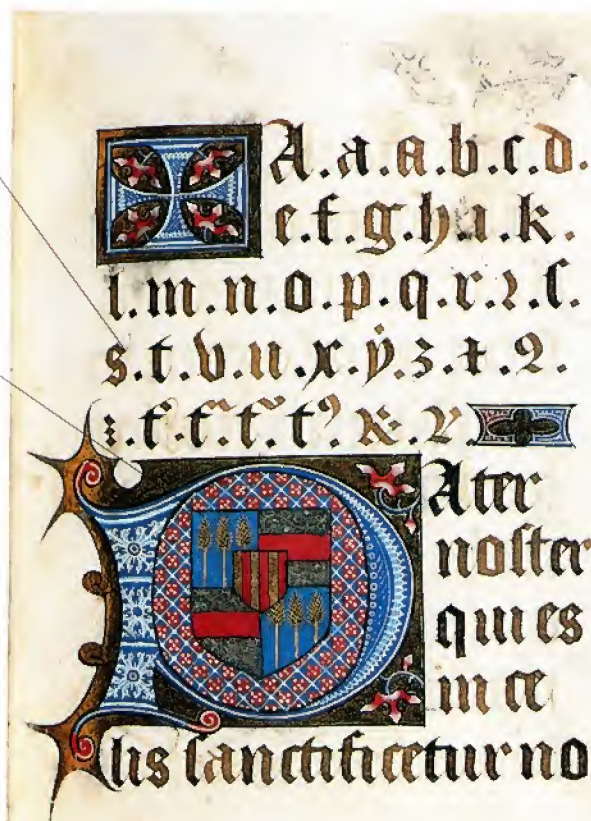 A.a.a.b.c.d.
e.f.g.h.i.k.
l.m.n.o.p.q.r.ꝛ.ſ.
s.t.v.u.x.ẏ.ʒ.
Pater
noſter
qui es
in ce
lis ſanctificetur no